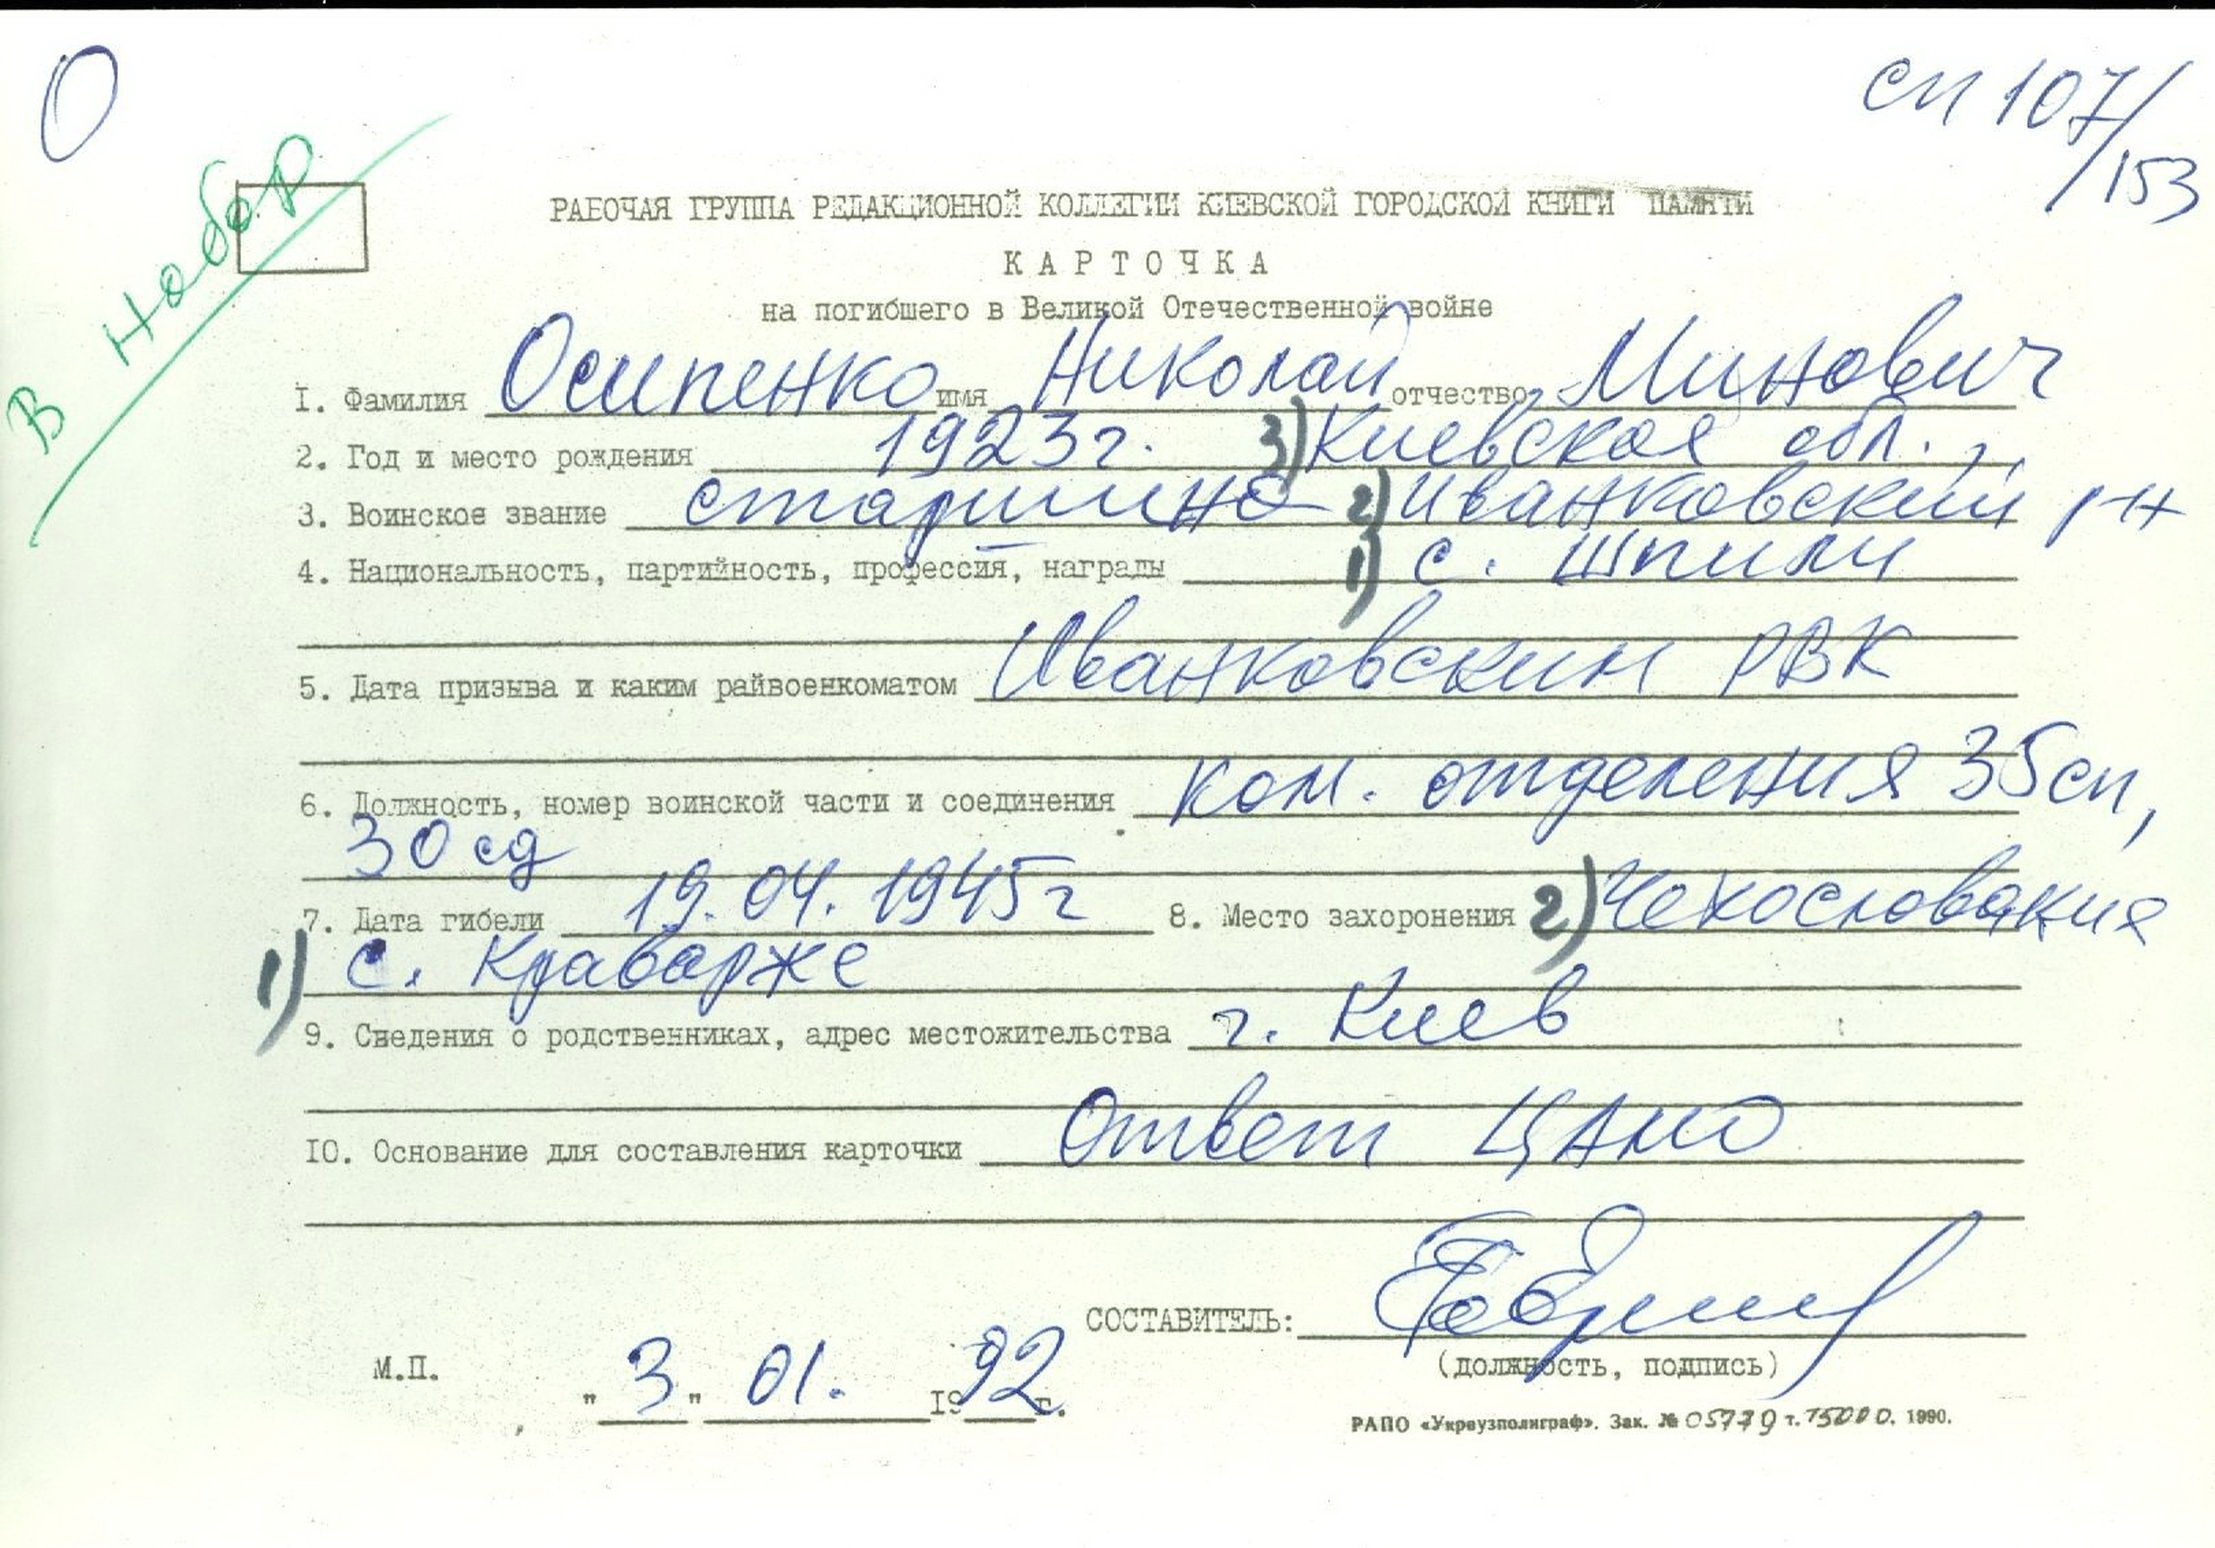 О
сп 107/153
В набор
РАБОЧАЯ ГРУППА РЕДАКЦИОННОЙ КОЛЛЕГИИ КИЕВСКОЙ ГОРОДСКОЙ КНИГИ ПАМЯТИ
КАРТОЧКА
на погибшего в Великой Отечественной войне
1. Фамилия Осипенко имя Николай отчество Минович
2. Год и место рождения 1923г. 3) Киевская обл.,
3. Воинское звание старшина 2) Иванковский р-н
4. Национальность, партийность, профессия, награды 1) с. Шпили
5. Дата призыва и каким райвоенкоматом Иванковским РВК
6. Должность, номер воинской части и соединения ком. отделения 35сп,
30 сд
7. Дата гибели 19.04.1945г 8. Место захоронения 2) Чехословакия
1) с. Краварже
9. Сведения о родственниках, адрес местожительства г. Киев
10. Основание для составления карточки Ответ ЦАМО
СОСТАВИТЕЛЬ:
(должность, подпись)
М.П. "3" 01. 1992г.
РАПО «Укрвузполиграф». Зак. № 05779 т. 15000. 1990.